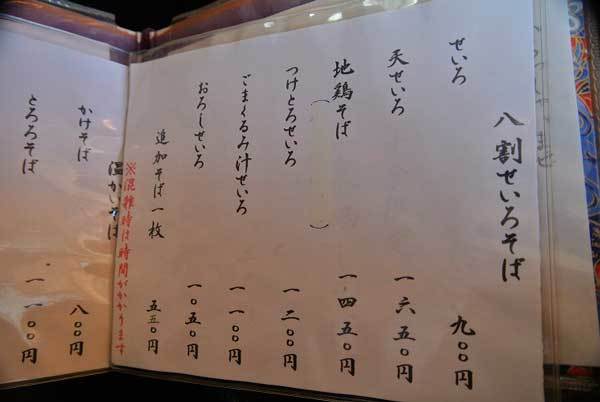 八割せいろそば
せいろ 九〇〇円
天せいろ 一六五〇円
地鶏そば 一四五〇円
つけとろせいろ 一二〇〇円
ごまくるみ汁せいろ 一一〇〇円
おろしせいろ 一〇五〇円
追加そば一枚 五五〇円
※混雑時は時間がかかります
温かいそば
かけそば 八〇〇円
とろろそば 一一〇〇円